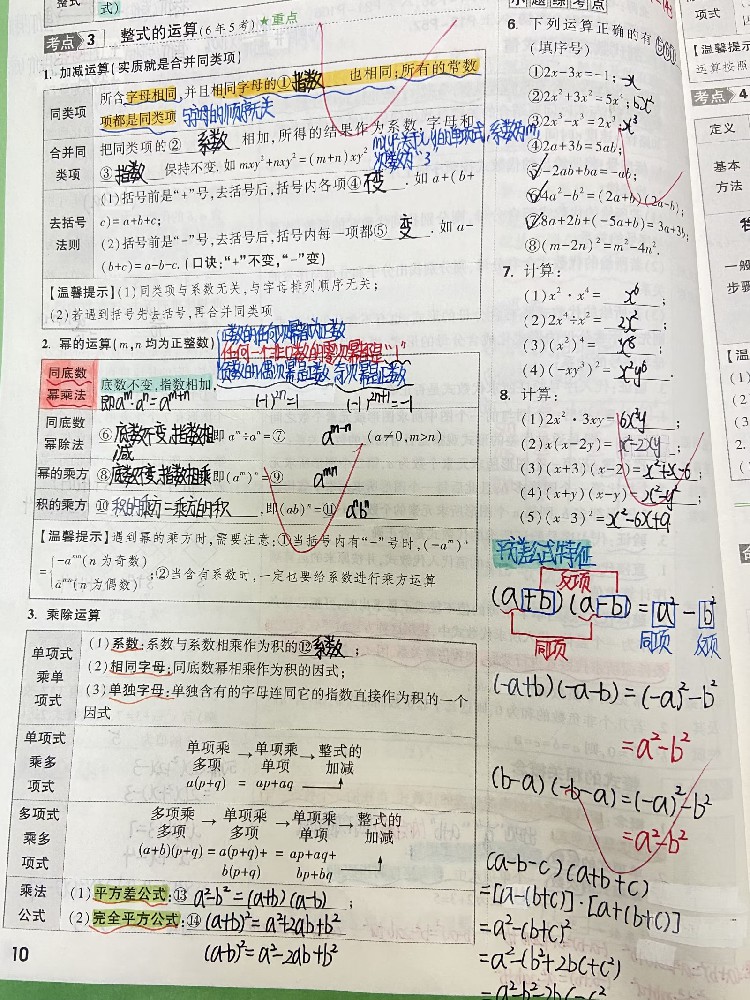 整式
式)
考点 3 整式的运算(6年5考) ★重点
1. 加减运算(实质就是合并同类项)
同类项
所含字母相同,并且相同字母的①指数也相同;所有的常数
项都是同类项 与字母的顺序无关
合并同
类项
把同类项的②系数相加,所得的结果作为系数,字母和
③指数保持不变.如mxy²+nxy²=(m+n)xy²
去括号
法则
(1)括号前是“+”号,去括号后,括号内各项④不变.如a+(b+
c)=a+b+c;
(2)括号前是“-”号,去括号后,括号内每一项都⑤变.如a-
(b+c)=a-b-c.(口诀:“+”不变,“-”变)
【温馨提示】(1)同类项与系数无关,与字母排列顺序无关;
(2)若遇到括号先去括号,再合并同类项
2. 幂的运算(m,n均为正整数)
正数的任何次幂都为正数
任何一个非0数的零次幂都是“1”
负数的偶次幂是正数 奇次幂是负数
同底数
幂乘法
底数不变,指数相加,
即aᵐ·aⁿ=aᵐ⁺ⁿ (-1)²ⁿ=1 (-1)²ⁿ⁺¹=-1
同底数
幂除法
⑥底数不变,指数相减 即aᵐ÷aⁿ=⑦ aᵐ⁻ⁿ (a≠0,m>n)
幂的乘方 ⑧底数不变,指数相乘 即(aᵐ)ⁿ=⑨ aᵐⁿ
积的乘方 ⑩积的乘方=乘方的积,即(ab)ⁿ=⑪ aⁿbⁿ
【温馨提示】遇到幂的乘方时,需要注意:①当括号内有“-”号时,(-aᵐ)ⁿ
={-aᵐⁿ(n为奇数)
aᵐⁿ(n为偶数);②当含有系数时,一定也要给系数进行乘方运算
3. 乘除运算
单项式
乘单
项式
(1)系数:系数与系数相乘作为积的⑫系数;
(2)相同字母:同底数幂相乘作为积的因式;
(3)单独字母:单独含有的字母连同它的指数直接作为积的一个
因式
单项式
乘多
项式
单项乘多项→单项乘单项→整式的加减
a(p+q) = ap+aq
多项式
乘多
项式
多项乘多项→单项乘多项→单项乘单项→整式的加减
(a+b)(p+q)=a(p+q)+ = ap+aq+
b(p+q) bp+bq
乘法
公式
(1)平方差公式:⑬ a²-b²=(a+b)(a-b);
(2)完全平方公式:⑭ (a+b)²=a²+2ab+b²
(a-b)²=a²-2ab+b²
10
小题练考点
6. 下列运算正确的有 ⑤⑥⑦
(填序号)
①2x-3x=-1; -x
②2x²+3x²=5x⁴; 5x²
③2x³-x³=2x³; x³
④2a+3b=5ab;
⑤-2ab+ba=-ab;
⑥4a²-b²=(2a+b)(2a-b);
⑦8a+2b+(-5a+b)=3a+3b;
⑧(m-2n)²=m²-4n².
7. 计算:
(1)x²·x⁴= x⁶;
(2)2x⁴÷x²= 2x²;
(3)(x²)⁴= x⁸;
(4)(-xy³)²= x²y⁶.
8. 计算:
(1)2x²·3xy= 6x³y;
(2)x(x-2y)= x²-2xy;
(3)(x+3)(x-2)= x²+x-6;
(4)(x+y)(x-y)= x²-y²;
(5)(x-3)²= x²-6x+9.
平方差公式特征
反项
(a+b)(a-b)=a²-b²
同项 同项 反项
(-a+b)(-a-b)=(-a)²-b²
=a²-b²
(b-a)(-b-a)=(-a)²-b²
=a²-b²
(a-b-c)(a+b+c)
=[a-(b+c)]·[a+(b+c)]
=a²-(b+c)²
=a²-(b²+2bc+c²)
=a²-b²-2bc-c²
项式
【温馨提示】
运算按照
考点 4
定义
基本
方法
一般
步骤